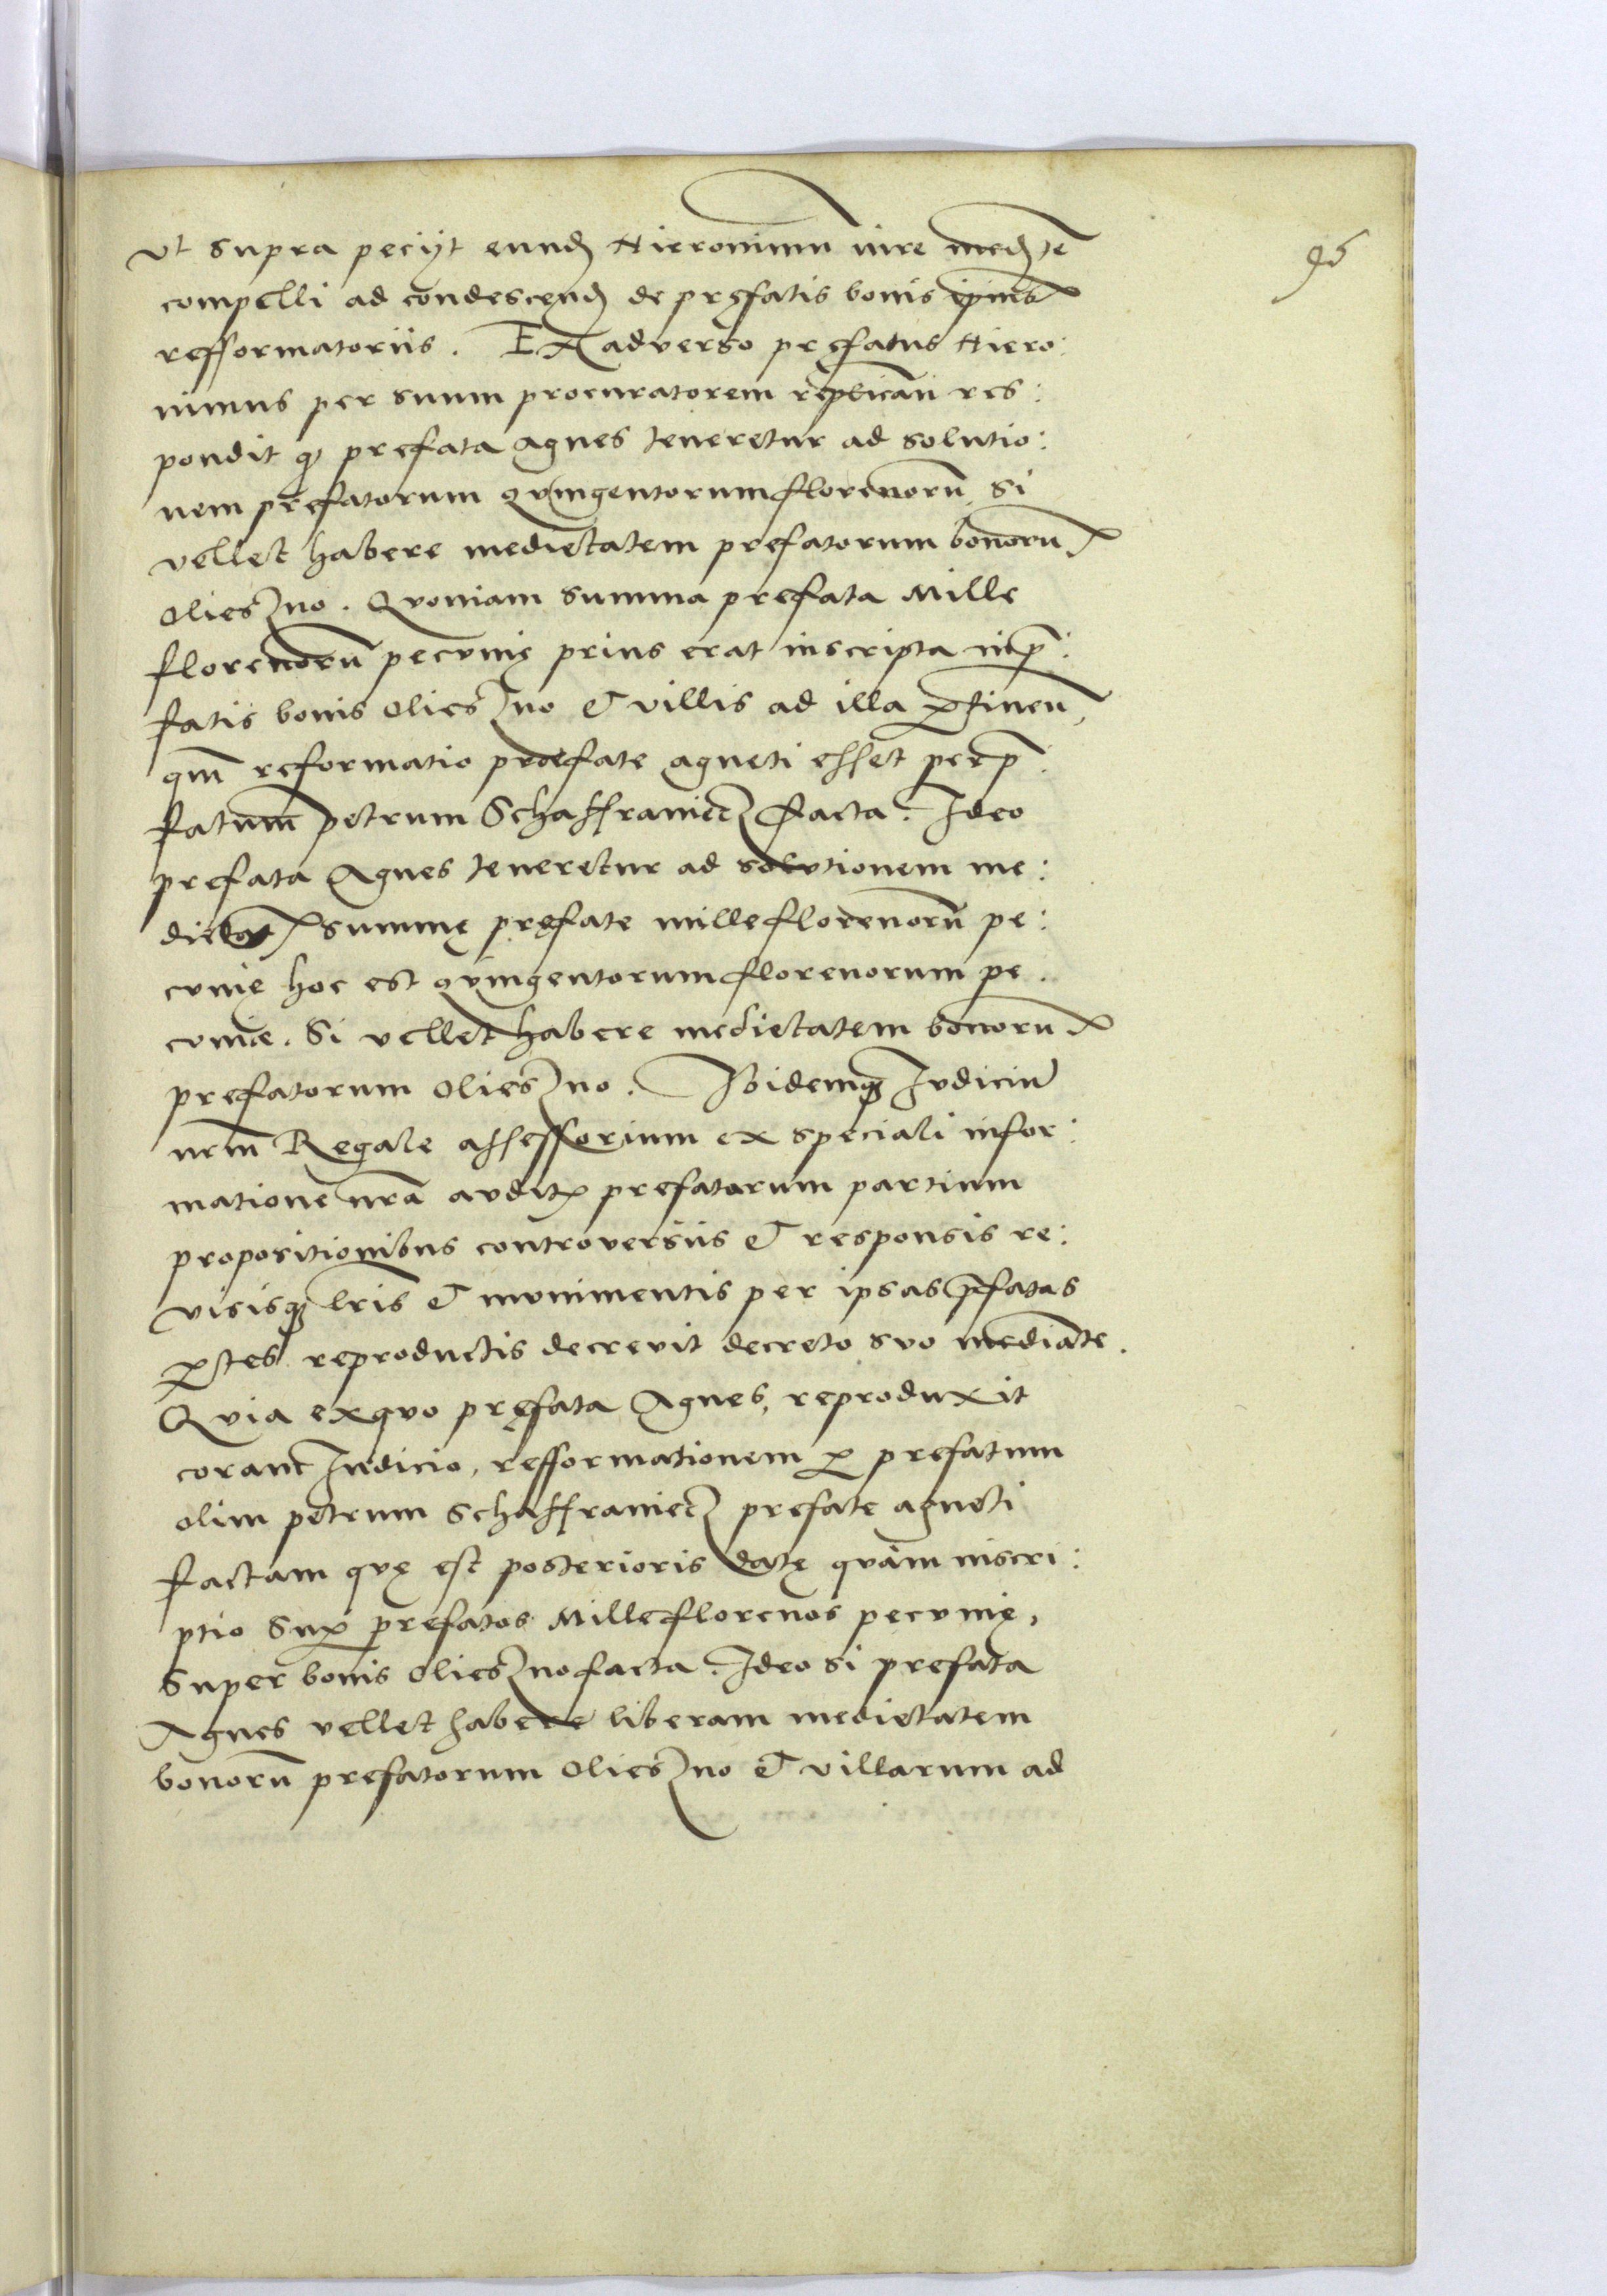 95
vt supra peciyt eund Hieronimum iure medte
compelli ad condescend de pręfatis bonis ipius
refformatoriis. Ex adverso pręfatus Hiero:
nimus per suum procuratorem replican̄ res:
pondit q prefata Agnes teneretur ad solutio:
nem prefatorum qvingentorum florenorū si
vellet habere medietatem prefatorum bonorū
Oliesno. Qvoniam summa prefata Mille
florenorū pecvnię prius erat inscripta in p̄:
fatis bonis Oliesno & villis ad illa ptinen̄,
qm̄ reformatio praefate Agneti esset per p̄:
fatum Petrum Schaffraniecz facta. Ideo
prefata Agnes teneretur ad solvtionem me:
dietat summę pręfate mille florenorū pe:
cvnię hoc est qvingentorum florenorum pe:
cvniæ. Si vellet habere medietatem bonorū
prefatorum Oliesno. Ibidemq Ivdiciū
nrm̄ Regale assessorium ex speciali infor:
matione nrā avdit prefatorum partium
propositionibus controversiis & responsis re:
visisq lris̄ & mvnimentis per ipsas p̄fatas
ptes reproductis decrevit decreto svo mediāte.
Qvia exqvo pręfata Agnes, reproduxit
coram Iudicio, refformationem p prefatum
olim Petrum Schaffraniecz prefate Agneti
factam qvę est posterioris datę qvam inscri:
ptio Sup prefatos Mille florenos pecvnię,
Super bonis Oliesno facta. Ideo si prefata
Agnes vellet habere liberam medietatem
bonorū prefatorum Oliesno & villarum ad